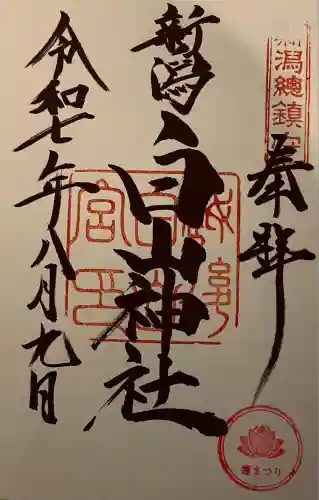 奉拝
新潟
白山神社
令和七年八月九日
新潟總鎮守
蓮まつり